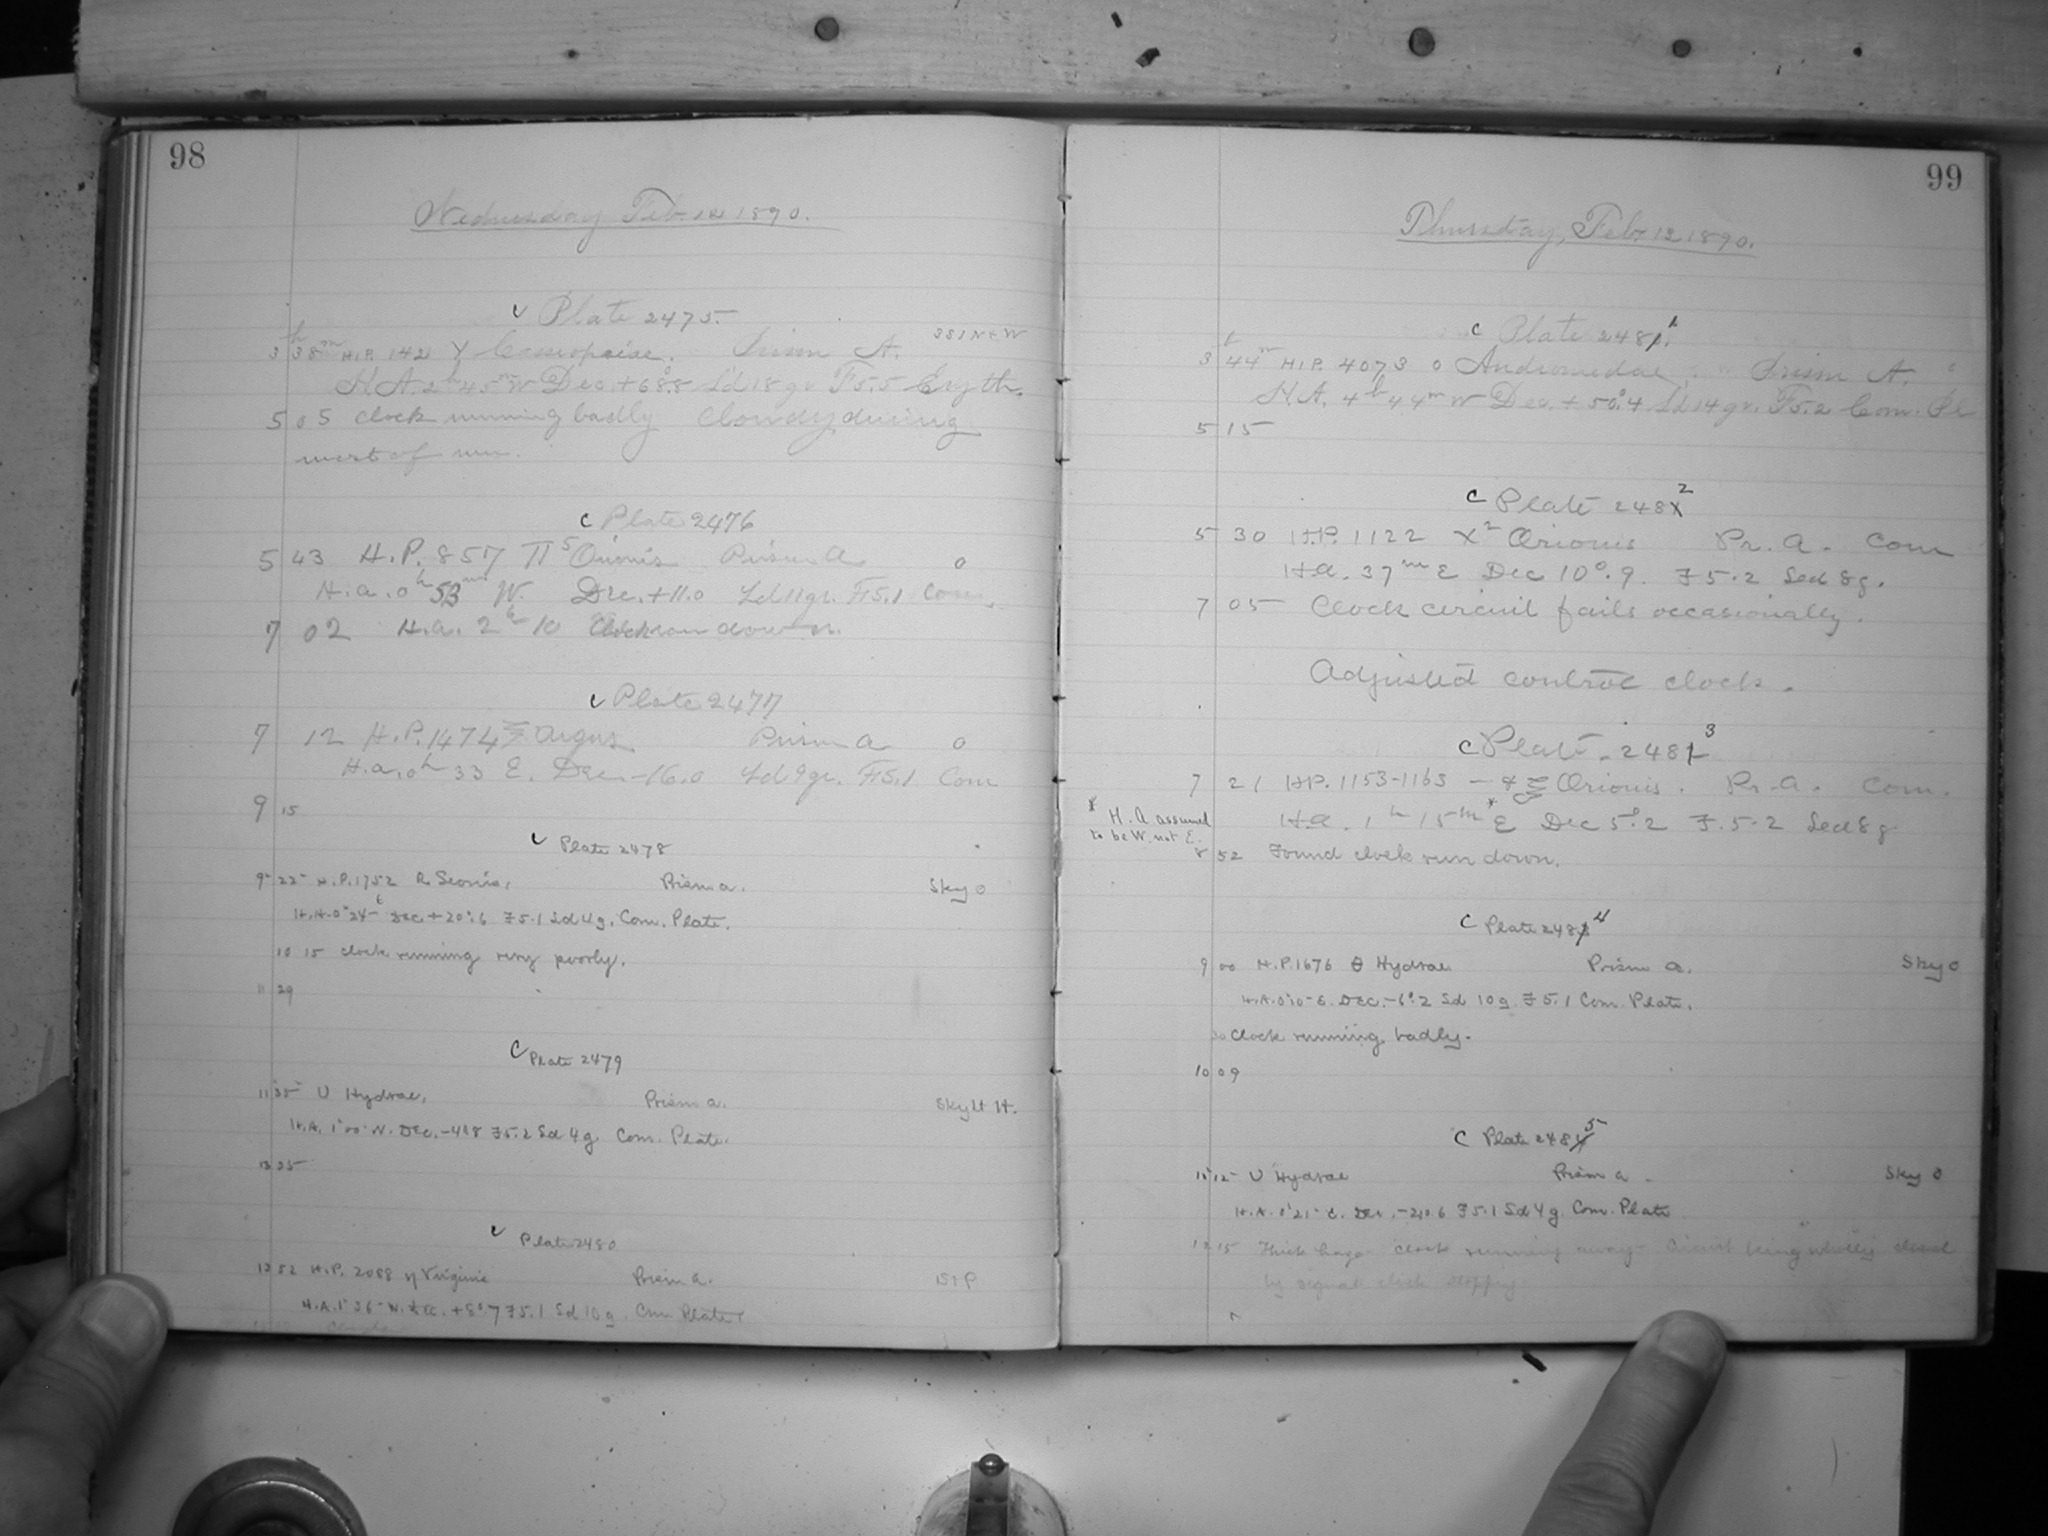 98
Wednesday Feb. 12 1890.
c Plate 2475.
3 38m H.P. 142 γ Cassiopeiae. Prism A.
H.A. 2h 45m W Dec. +68.8 Sd 18 gr. F5.5 Eryth.
5 05 clock running badly Cloudy during
most of run.
c Plate 2476
5 43 H.P. 857 π5 Orionis Prism a 0
H.a. 0h 53m W. Dec. +11.0 Sd 11 gr. F5.1 Com.
7 02 H.a. 2h 10 Clock ran down.
c Plate 2477
7 12 H.P. 1474 ξ Argus Prism a 0
H.a. 0h 33 E. Dec. -16.0 Sd 9 gr. F5.1 Com
9 15
c Plate 2478
9 22 H.P. 1752 R. Leonis, Prism a. Sky 0
H.A. 0 24 E Dec. +20°.6 F5.1 Sd 4g. Com. Plate.
10 15 clock running very poorly.
11 29
c Plate 2479
11 35 U Hydrae, Prism a. Sky Lt H.
H.A. 1 00 W. Dec. F5.2 Sd 4g. Com. Plate.
c Plate 2480
H.P. 2088 η Virginis Prism a.
H.A. 1 36 W. Dec. +8°.7 F5.1 Sd 10g. Com. Plate
99
Thursday, Feb. 12 1890.
c Plate 2481
3 44m H.P. 4073 o Andromedae Prism A.
H.A. 4h 44m W Dec. +50°.4 Sd 14 gr. F5.2 Com. Pl
5 15
c Plate 248 2
5 30 H.P. 1122 X2 Orionis Pr. a. Com
H.a. 37m E Dec 10°.9. F5.2 Sed 8g.
7 05 Clock circuit fails occasionally.
Adjusted control clock.
c Plate 248 3
7 21 H.P. 1153-1163 - & ξ Orionis. Pr. a. Com.
H.a. 1h 15m* E Dec 5°.2 F.5.2 Sed 8g
* H.A assumed
to be W. not E.
8 52 Found clock run down.
c Plate 248 4
9 00 H.P. 1676 θ Hydrae Prism a. Sky 0
H.A. 0 10 E. Dec. -6°.2 Sd 10g. F5.1 Com. Plate.
30 clock running badly.
10 09
c Plate 248 5
U Hydrae Prism a. Sky 0
H.A. 0 21 E. Dec. F5.1 Sd 4g. Com. Plate
15 Thick haze - clock running away - Circuit being wholly closed
by signal clock stopping